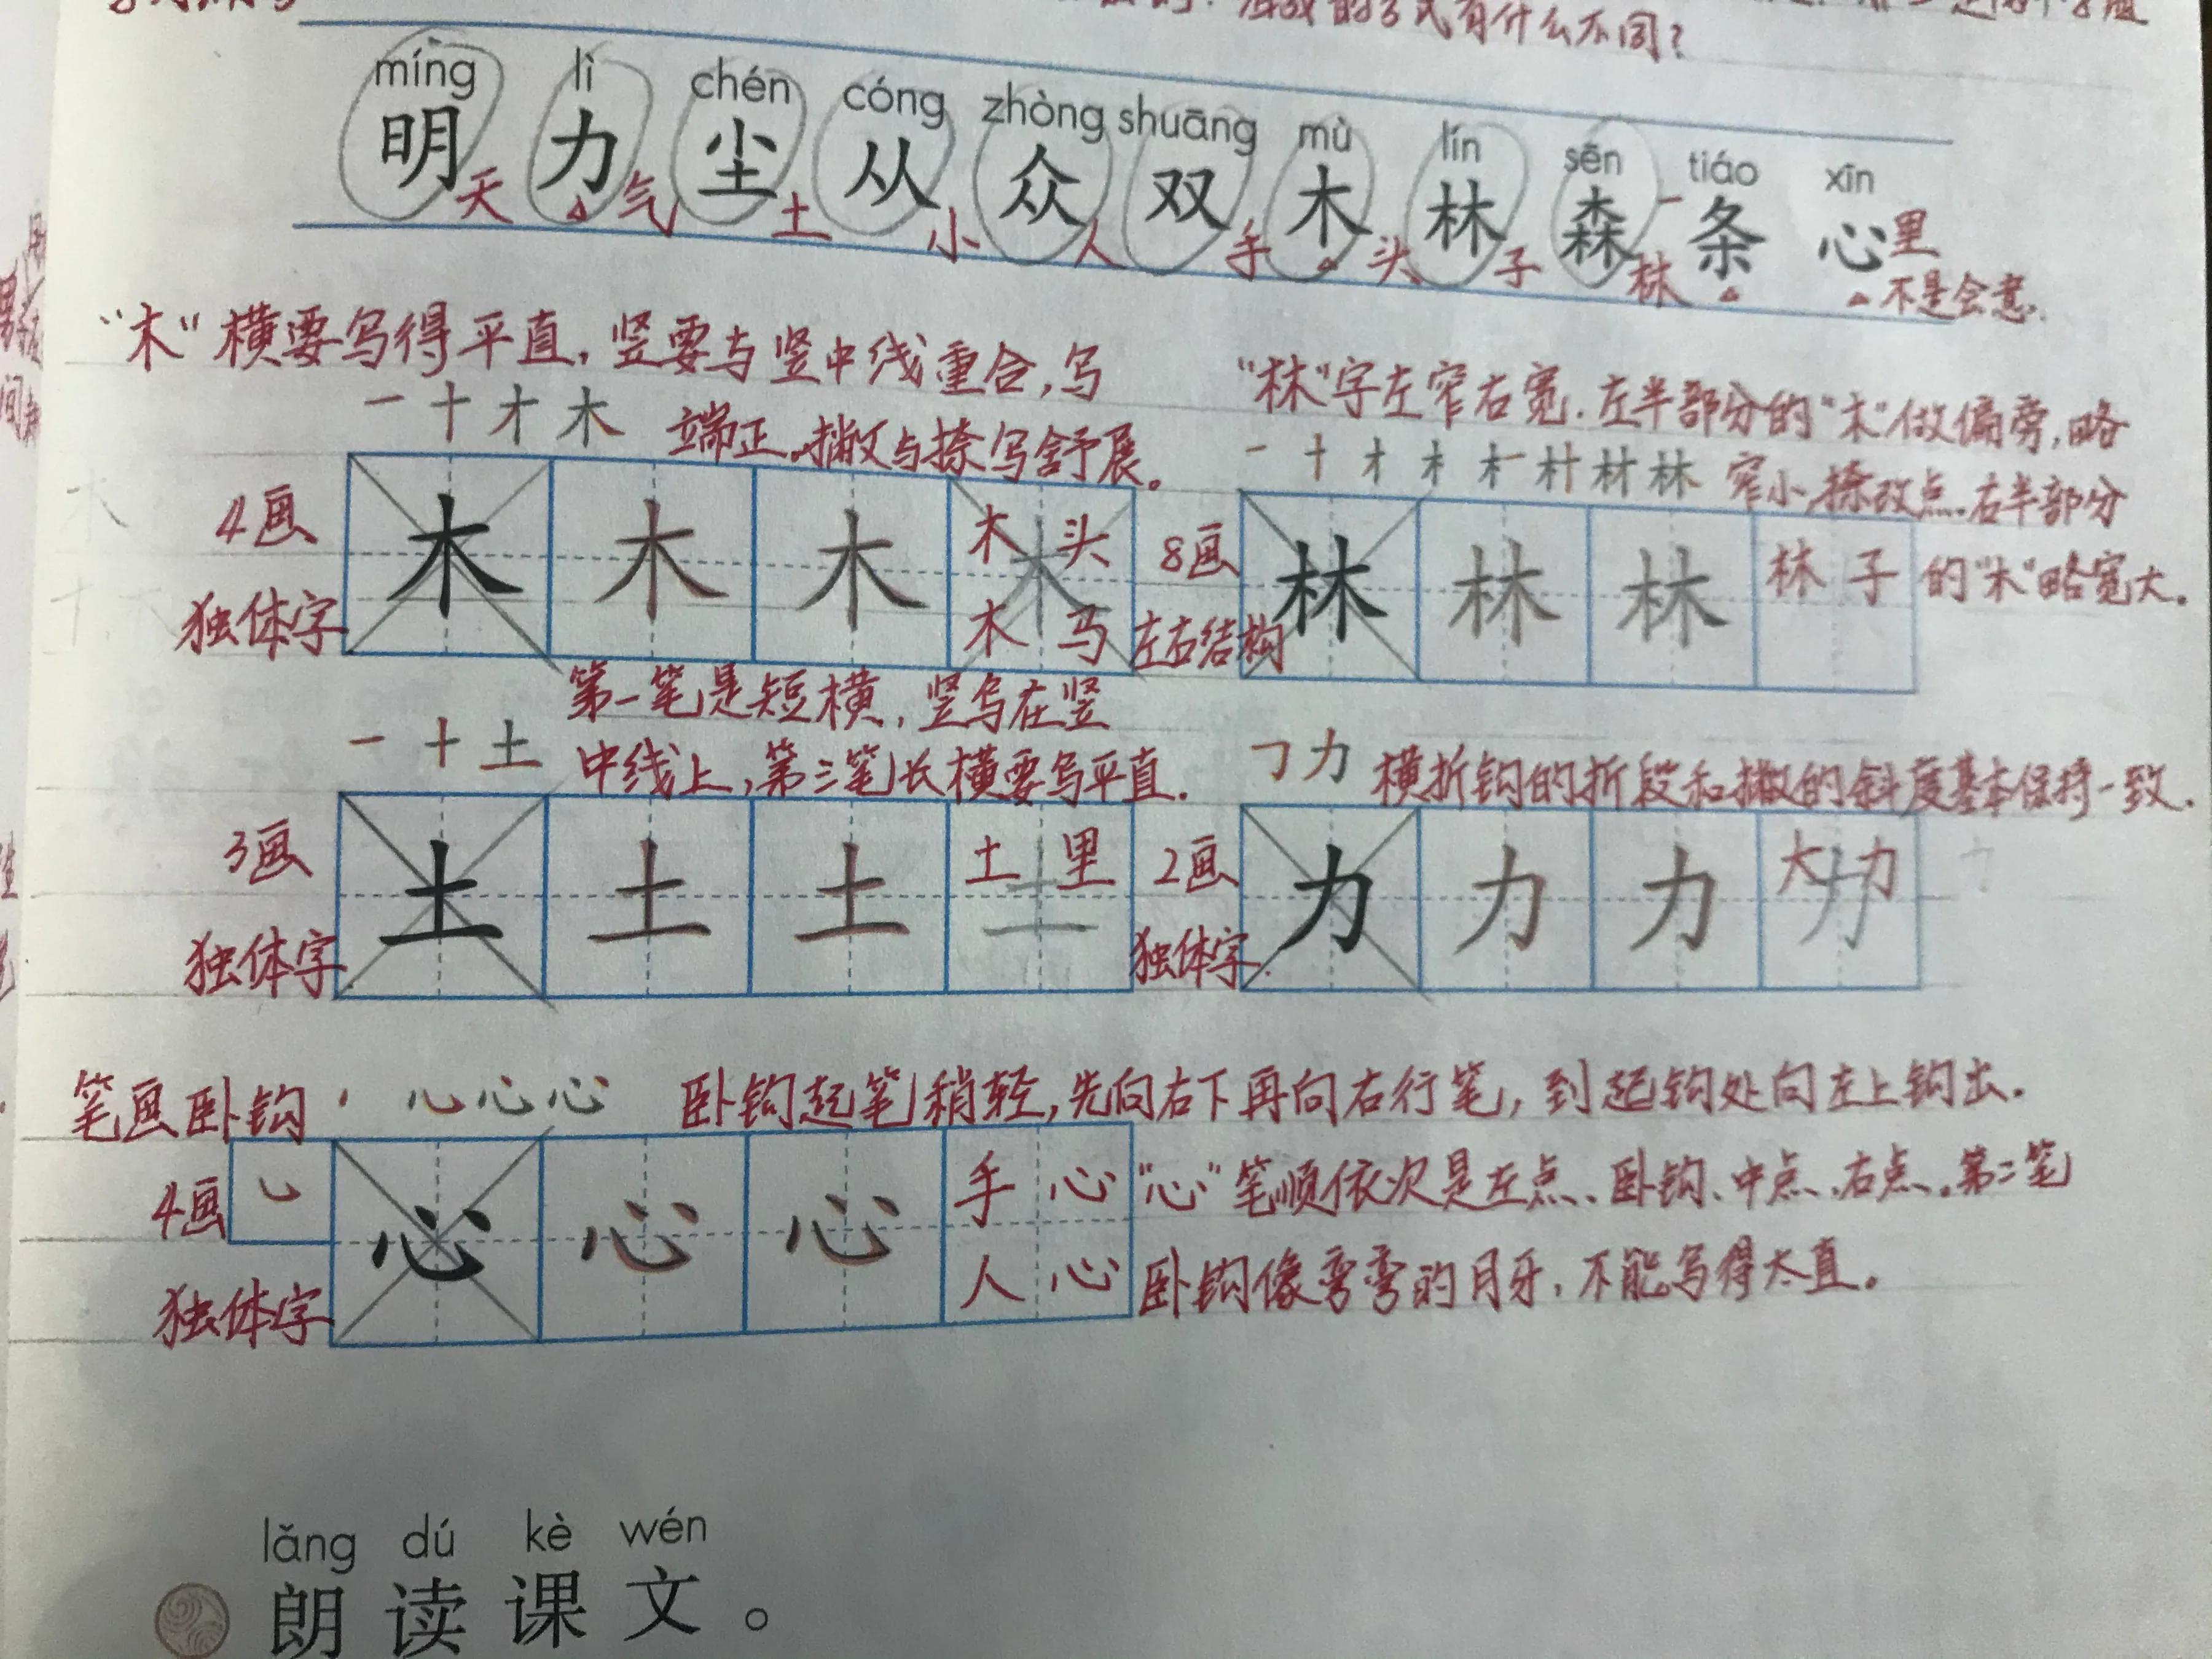 成的方式有什么不同？
míng lì chén cóng zhòng shuāng mù lín sēn tiáo xīn
明天 力气 尘土 从小 众人 双手 木头 林子 森林 一条 心里
不是会意.
"木"横要写得平直,竖要与竖中线重合,写
端正。撇与捺写舒展。
一 十 才 木
4画
独体字
木 木 木 木
木头
木马
"林"字左窄右宽.左半部分的"木"做偏旁,略
窄小,捺改点.右半部分
的"木"略宽大。
8画
左右结构
林 林 林
林子
第一笔是短横,竖写在竖
中线上,第三笔长横要写平直.
一 十 土
3画
独体字
土 土 土 土
土里
㇆ 力 横折钩的折段和撇的斜度基本保持一致.
2画
独体字.
力 力 力 力
大力
笔画卧钩 卧钩起笔稍轻,先向右下再向右行笔,到起钩处向左上钩出.
4画
独体字
㇃ 心 心 心
手心
人心
"心"笔顺依次是左点、卧钩、中点、右点。第二笔
卧钩像弯弯的月牙,不能写得太直。
lǎng dú kè wén
朗读课文。